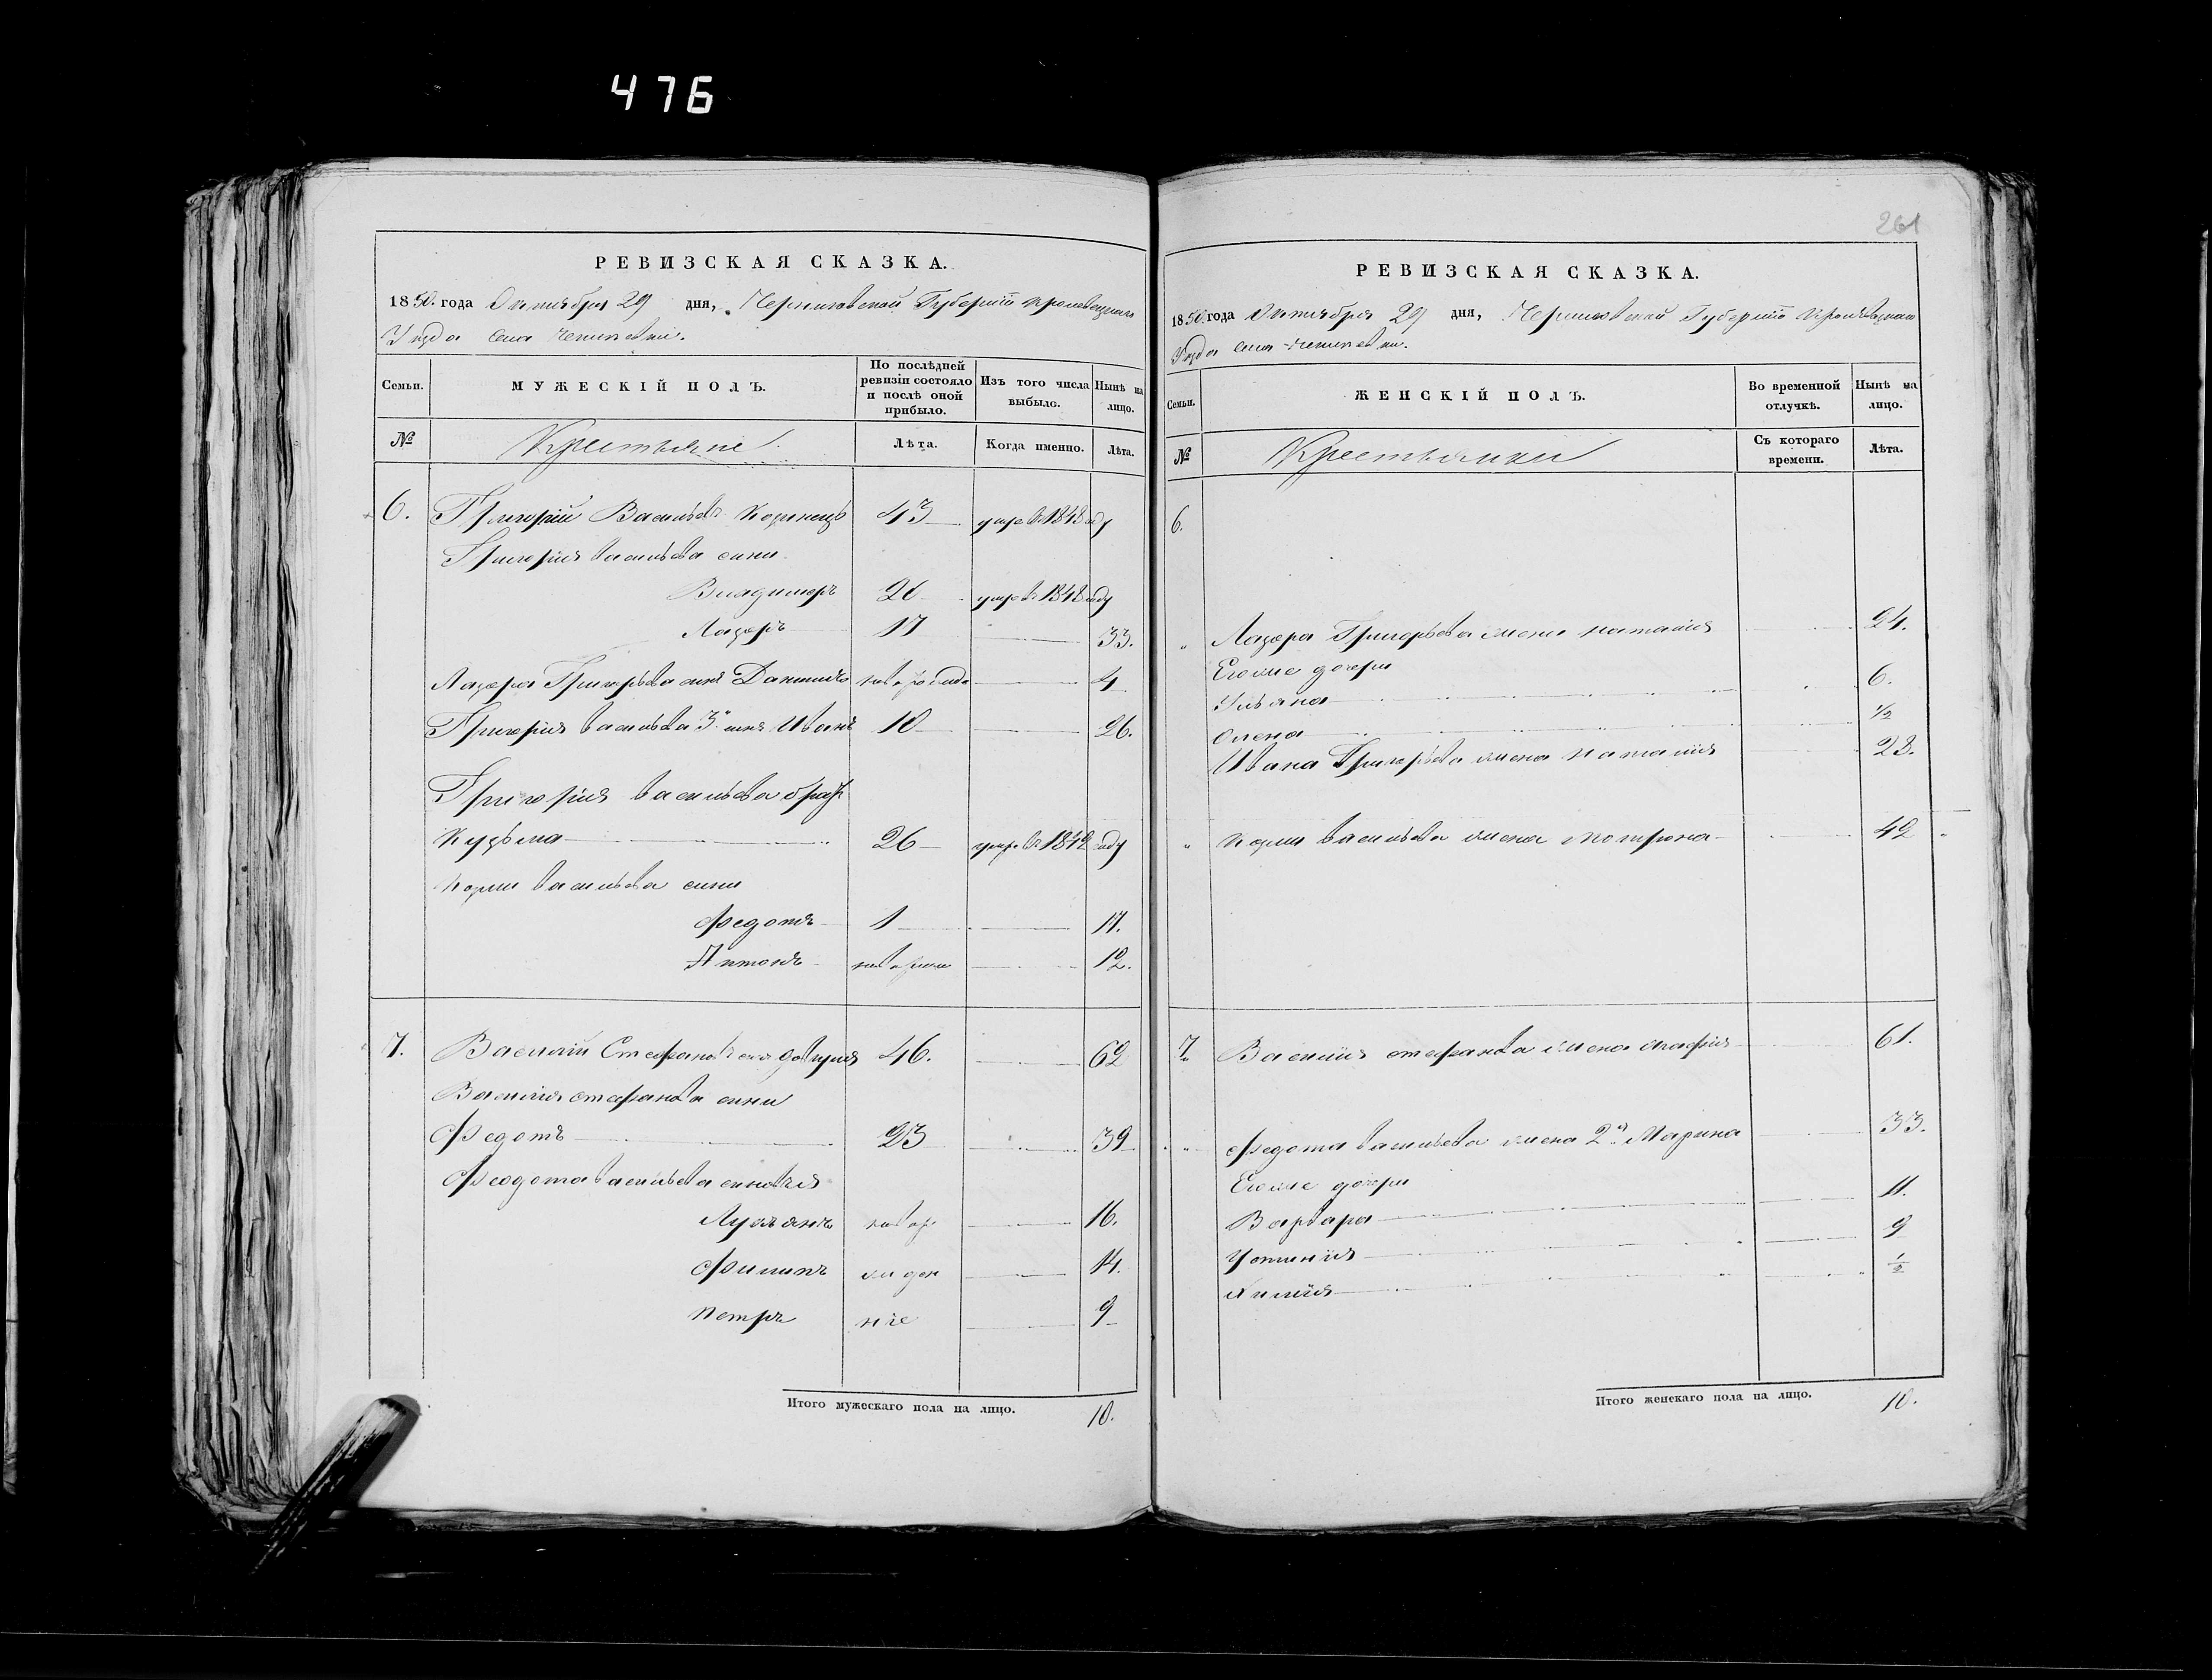 476
РЕВИЗСКАЯ СКАЗКА.
1850. года Октября 29 дня, Черниговской Губерніи Кролевецкаго
Уѣзда села
Семьи.
МУЖЕСКІЙ ПОЛЪ.
По послѣдней ревизіи состояло и послѣ оной прибыло.
Изъ того числа выбыло.
Нынѣ на лицо.
№
Крестьяне
Лѣта.
Когда именно.
Лѣта.
6. Григорій Васильевъ 43 умре въ 1848 году
Григорія Васильева сыни
Владимеръ 20 умре въ 1848 году
Лазарь 17 33.
Лазаря Григорьева сынъ Данило новорожде 4
Григорія Васильева 3й сынъ Иванъ 10 26.
Григорія Васильева братъ
Кузьма 26 умре въ 1842 году
Козми Васильева сыни
Федотъ 1 17.
Антонъ новорожд 12.
7. Василій Стефановъ 46. 62
Василія Стефанова сыни
Федотъ 23 39
Феодота Васильева сыновья
Лукьянъ новор 16.
Филипъ жден 14.
Петръ ніе 9
Итого мужескаго пола на лицо. 10.
261
РЕВИЗСКАЯ СКАЗКА.
1850. года Октября 29 дня, Черниговской Губерніи Кролевецкаго
Уѣзда села
Семьи.
ЖЕНСКІЙ ПОЛЪ.
Во временной отлучкѣ.
Нынѣ на лицо.
№
Крестьянки
Съ котораго времени.
Лѣта.
6.
" Лазаря Григорьева жена Наталія 24.
Его же дочери
Ульяна 6.
Олена 1/2
Ивана Григорьева жена Наталія 23.
" Козми Васильева жена Мотрона 42
7. Василія Стефанова жена 61.
" Федота Васильева жена 2я Марина 33.
Его же дочери
Варвара 11.
Устинія 9
1/2
Итого женскаго пола на лицо. 10.